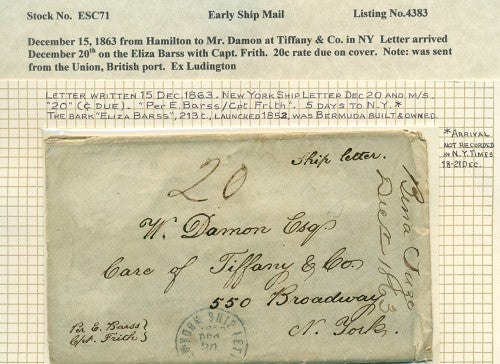 Stock No. ESC71 Early Ship Mail Listing No.4383
December 15, 1863 from Hamilton to Mr. Damon at Tiffany & Co. in NY Letter arrived
December 20th on the Eliza Barss with Capt. Frith. 20c rate due on cover. Note: was sent
from the Union, British port. Ex Ludington
LETTER WRITTEN 15 DEC. 1863. NEW YORK SHIP LETTER DEC 20 AND M/S
"20" (¢ DUE). "Per E. Barss/Cpt. Frith". 5 DAYS TO N.Y. *
THE BARK "ELIZA BARSS", 213 t., LAUNCHED 1852, WAS BERMUDA BUILT & OWNED.
* ARRIVAL
NOT RECORDED
IN N.Y. TIMES
18-21 DEC.
Ship letter.
20
W. Damon Esq
Care of Tiffany & Co
550 Broadway
N. York.
Per E. Barss
Cpt. Frith
YORK SHIP LET
DEC
20
1863